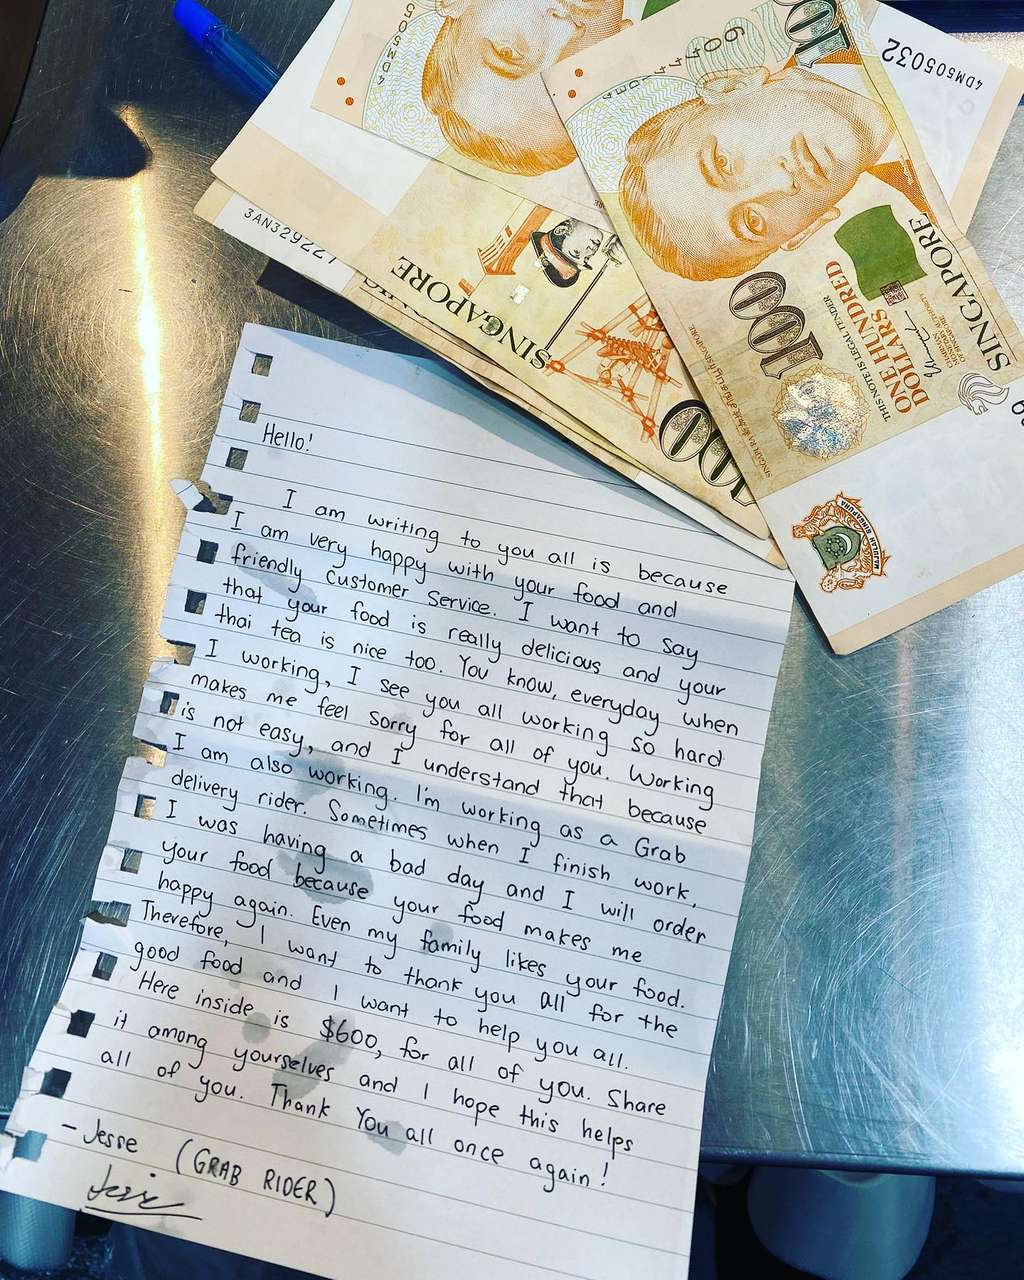 4DM505032
3AN329227
SINGAPORE
100
THIS NOTE IS LEGAL TENDER
ONE HUNDRED
DOLLARS
SINGAPORE
MAJULAH SINGAPURA
Hello!
I am writing to you all is because
I am very happy with your food and
friendly customer service. I want to say
that your food is really delicious and your
thai tea is nice too. You know, everyday when
I working, I see you all working so hard
makes me feel sorry for all of you. Working
is not easy, and I understand that because
I am also working. I'm working as a Grab
delivery rider. Sometimes when I finish work,
I was having a bad day and I will order
your food because your food makes me
happy again. Even my family likes your food.
Therefore, I want to thank you all for the
good food and I want to help you all.
Here inside is $600, for all of you. Share
it among yourselves and I hope this helps
all of you. Thank You all once again!
- Jesse (GRAB RIDER)